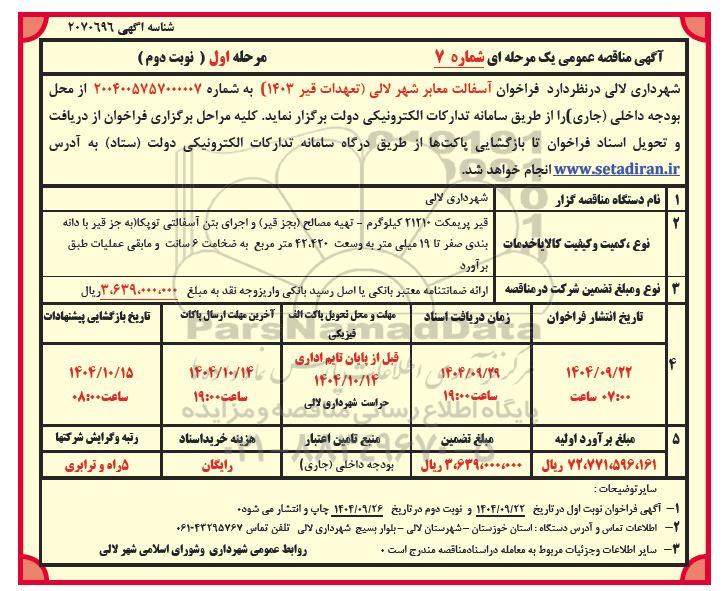 شناسه آگهی ۲۰۷۰۶۹۶
آگهی مناقصه عمومی یک مرحله ای شماره ۷
مرحله اول ( نوبت دوم )
شهرداری لالی درنظردارد فراخوان آسفالت معابر شهر لالی (تعهدات قیر ۱۴۰۳) به شماره ۲۰۰۴۰۰۵۷۵۷۰۰۰۰۰۷ از محل
بودجه داخلی (جاری)را از طریق سامانه تدارکات الکترونیکی دولت برگزار نماید. کلیه مراحل برگزاری فراخوان از دریافت
و تحویل اسناد فراخوان تا بازگشایی پاکت‌ها از طریق درگاه سامانه تدارکات الکترونیکی دولت (ستاد) به آدرس
www.setadiran.ir انجام خواهد شد.
۱ نام دستگاه مناقصه گزار شهرداری لالی
۲ نوع ،کمیت وکیفیت کالایاخدمات
قیر پریمکت ۲۱۲۱۰ کیلوگرم - تهیه مصالح (بجز قیر) و اجرای بتن آسفالتی توپکا(به جز قیر با دانه
بندی صفر تا ۱۹ میلی متر به وسعت ۴۲،۴۲۰ متر مربع به ضخامت ۶ سانت و مابقی عملیات طبق
برآورد
۳ نوع ومبلغ تضمین شرکت درمناقصه ارائه ضمانتنامه معتبر بانکی یا اصل رسید بانکی واریزوجه نقد به مبلغ ۳،۶۳۹،۰۰۰،۰۰۰ریال
۴
تاریخ انتشار فراخوان
زمان دریافت اسناد
مهلت و محل تحویل پاکت الف
فیزیکی
آخرین مهلت ارسال پاکات
تاریخ بازگشایی پیشنهادات
۱۴۰۴/۰۹/۲۲
۰۷:۰۰ ساعت
۱۴۰۴/۰۹/۲۹
ساعت۱۹:۰۰
قبل از پایان تایم اداری
۱۴۰۴/۱۰/۱۴
حراست شهرداری لالی
۱۴۰۴/۱۰/۱۴
ساعت۱۹:۰۰
۱۴۰۴/۱۰/۱۵
ساعت۰۸:۰۰
۵ مبلغ برآورد اولیه مبلغ تضمین منبع تامین اعتبار هزینه خریداسناد رتبه وگرایش شرکتها
۷۲،۷۷۱،۵۹۶،۱۶۱ ریال ۳،۶۳۹،۰۰۰،۰۰۰ ریال بودجه داخلی (جاری) رایگان ۵راه و ترابری
سایرتوضیحات :
۱- آگهی فراخوان نوبت اول در تاریخ ۱۴۰۴/۰۹/۲۲ و نوبت دوم در تاریخ ۱۴۰۴/۰۹/۲۶ چاپ و انتشار می شود.
۲- اطلاعات تماس و آدرس دستگاه : استان خوزستان - شهرستان لالی - بلوار بسیج شهرداری لالی تلفن تماس ۴۳۲۹۵۷۶۷-۰۶۱
۳- سایر اطلاعات وجزئیات مربوط به معامله دراسنادمناقصه مندرج است .
روابط عمومی شهرداری وشورای اسلامی شهر لالی
ParsNamadData
پایگاه اطلاع رسانی مناقصه و مزایده
۰۲۱-۸۸۳۴۹۶۷۰-۵